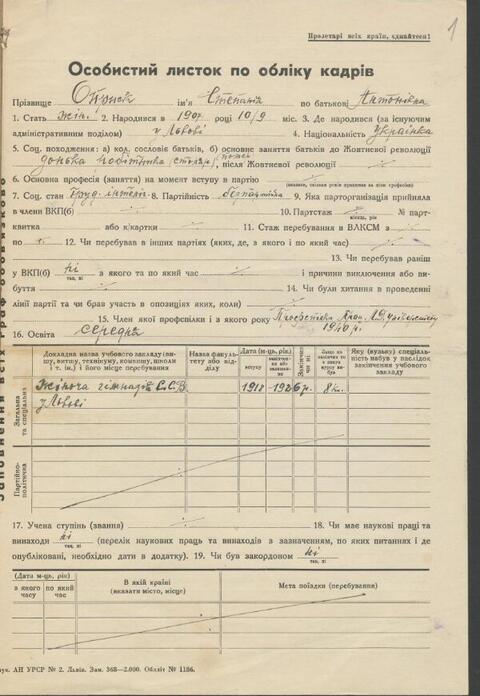 1
Пролетарі всіх країн, єднайтеся!
Особистий листок по обліку кадрів
Прізвище ім'я Степанія по батькові Антонівна
1. Стать жін. 2. Народився в 1907 році 10/9 міс. 3. Де народився (за існуючим
адміністративним поділом) у Львові 4. Національність Українка
5. Соц. походження: а) кол. сословіє батьків, б) основне заняття батьків до Жовтневої революції
донька робітника (столяр), після Жовтневої революції
6. Основна професія (заняття) на момент вступу в партію
(вказати, скільки років працював за цією професією)
7. Соц. стан Труд. інтеліг. 8. Партійність безпартійна 9. Яка парторганізація прийняла
в члени ВКП(б) 10. Партстаж № парт-
місяць, рік
квитка або к/картки 11. Стаж перебування в ВЛКСМ з
по 12. Чи перебував в інших партіях (яких, де, з якого і по який час)
13. Чи перебував раніш
у ВКП(б) ні з якого та по який час і причини виключення або ви-
так, ні
буття 14. Чи були хитання в проведенні
лінії партії та чи брав участь в опозиціях яких, коли)
15. Член якої профспілки і з якого року
1940 р.
16. Освіта середня
Докладна назва учбового закладу (ви-
шу, витшу, технікуму, комвишу, школи
і т. ін.) і його місце перебування)
Назва факуль-
тету або від-
ділу
Дата (м-ць, рік)
вступу
закінчен-
ня або
залишен-
ня
Закінчив
чи ні
Якщо не
закінчив то
з якого
курсу ви-
був
Яку (вузьку) спеціаль-
ність набув в наслідок
закінчення учбового
закладу
Загальна
та спеціальна
Жіноча гімназія С.С.В. 1918 1926 р. 8 кл.
у Львові
Партійно-
політична
17. Учена ступінь (звання) 18. Чи має наукові праці та
винаходи ні (перелік наукових праць та винаходів з зазначенням, по яких питаннях і де
так, ні
опубліковані, необхідно дати в додатку). 19. Чи був закордоном ні
так, ні
(Дата м-ць, рік)
з якого
часу
по який
час
В якій країні
(вказати місто, місце)
Мета поїздки (перебування)
Заповнення всіх граф обов'язково
рук. АН УРСР № 2. Львів. Зам. 368—2.000. Обліт № 1186.